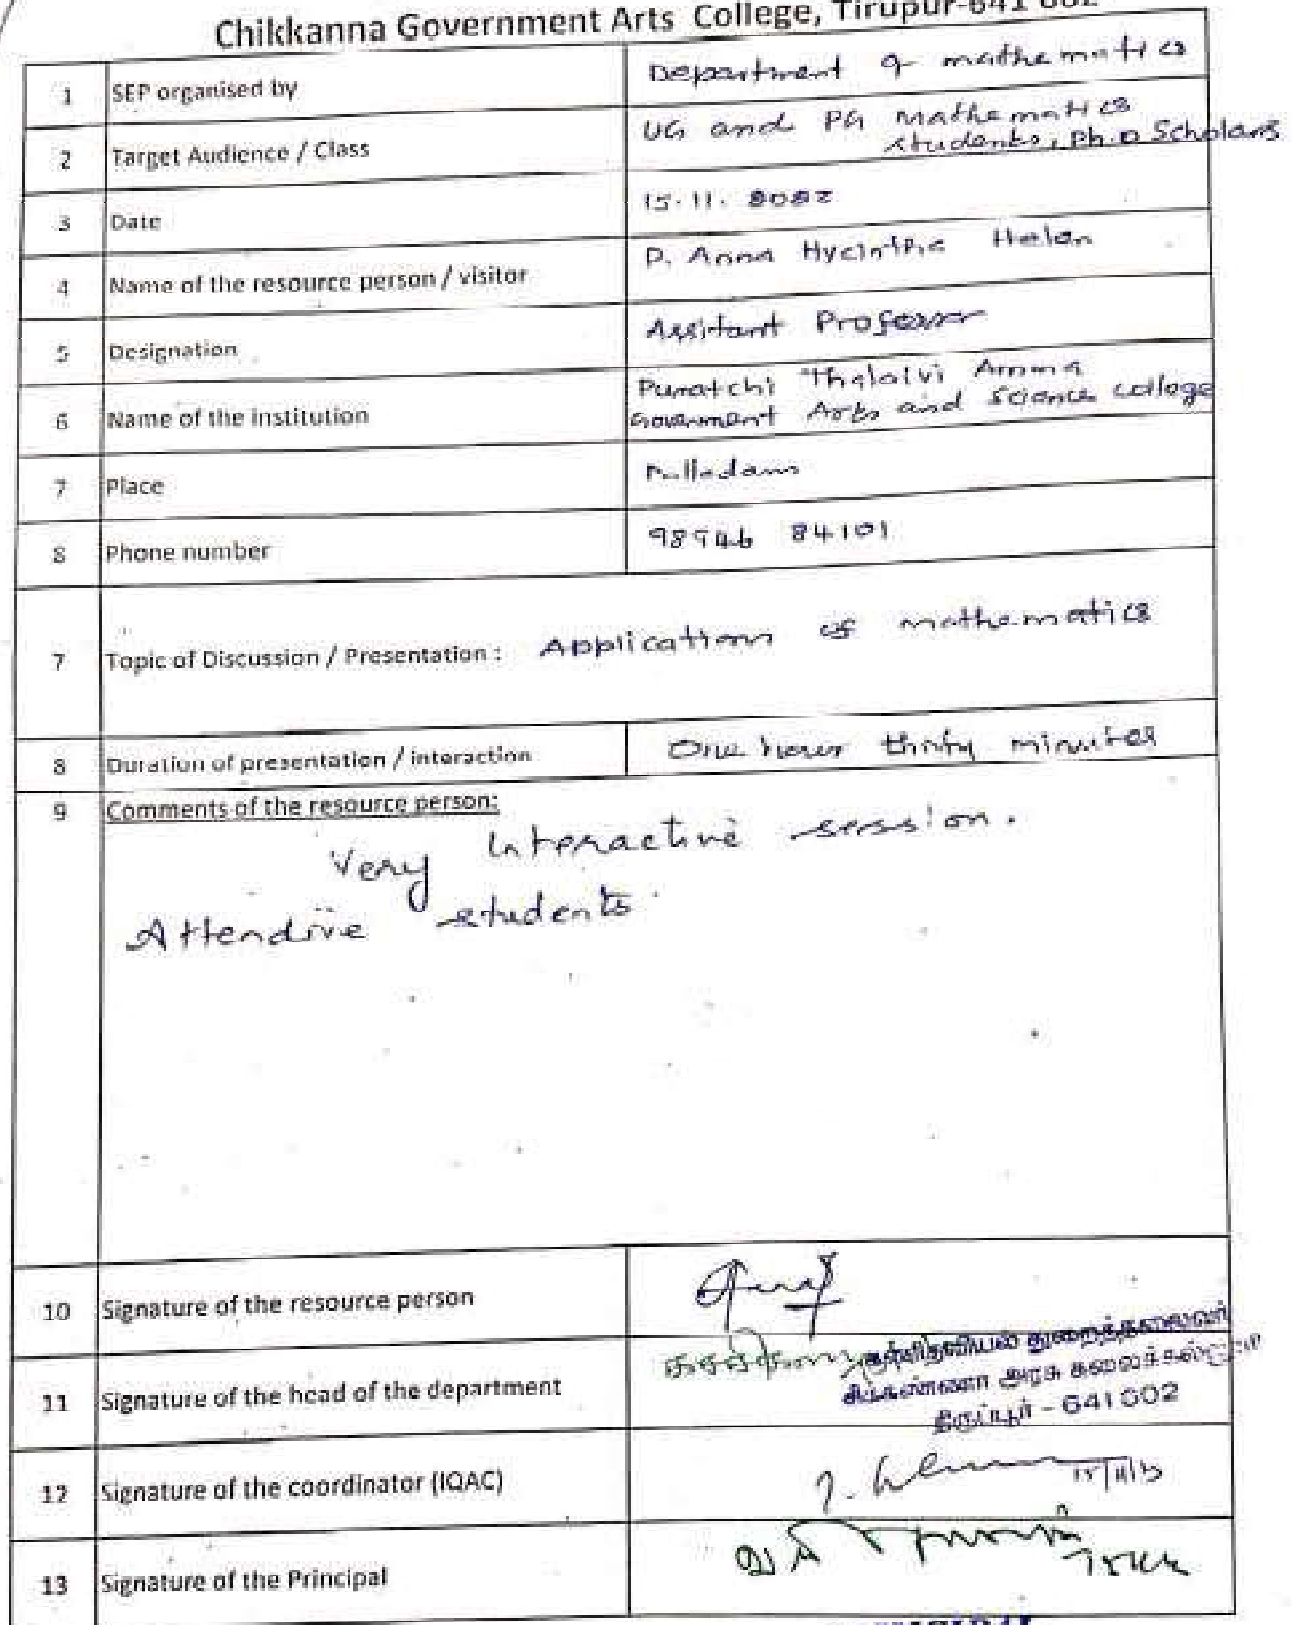 Chikkanna Government Arts College, Tirupur-641 602
1 SEP organised by Department of mathematics
2 Target Audience / Class UG and PG Mathematics
students, Ph.D Scholars
3 Date 15.11.
4 Name of the resource person / visitor P. Anna Hycintha Helan
5 Designation Assitant Professor
6 Name of the institution Puratchi Thalaivi Amma
Government Arts and Science college
7 Place Palladam
8 Phone number 98946 84101
7 Topic of Discussion / Presentation : Application of mathematics
8 Duration of presentation / interaction One hour thirty minutes
9 Comments of the resource person:
Very Interactive session.
Attendive students.
10 Signature of the resource person
கணிதவியல் துறைத்தலைவர்
11 Signature of the head of the department சிக்கண்ணா அரசு கலைக்கல்லூரி
திருப்பூர் - 641 602
12 Signature of the coordinator (IQAC)
13 Signature of the Principal